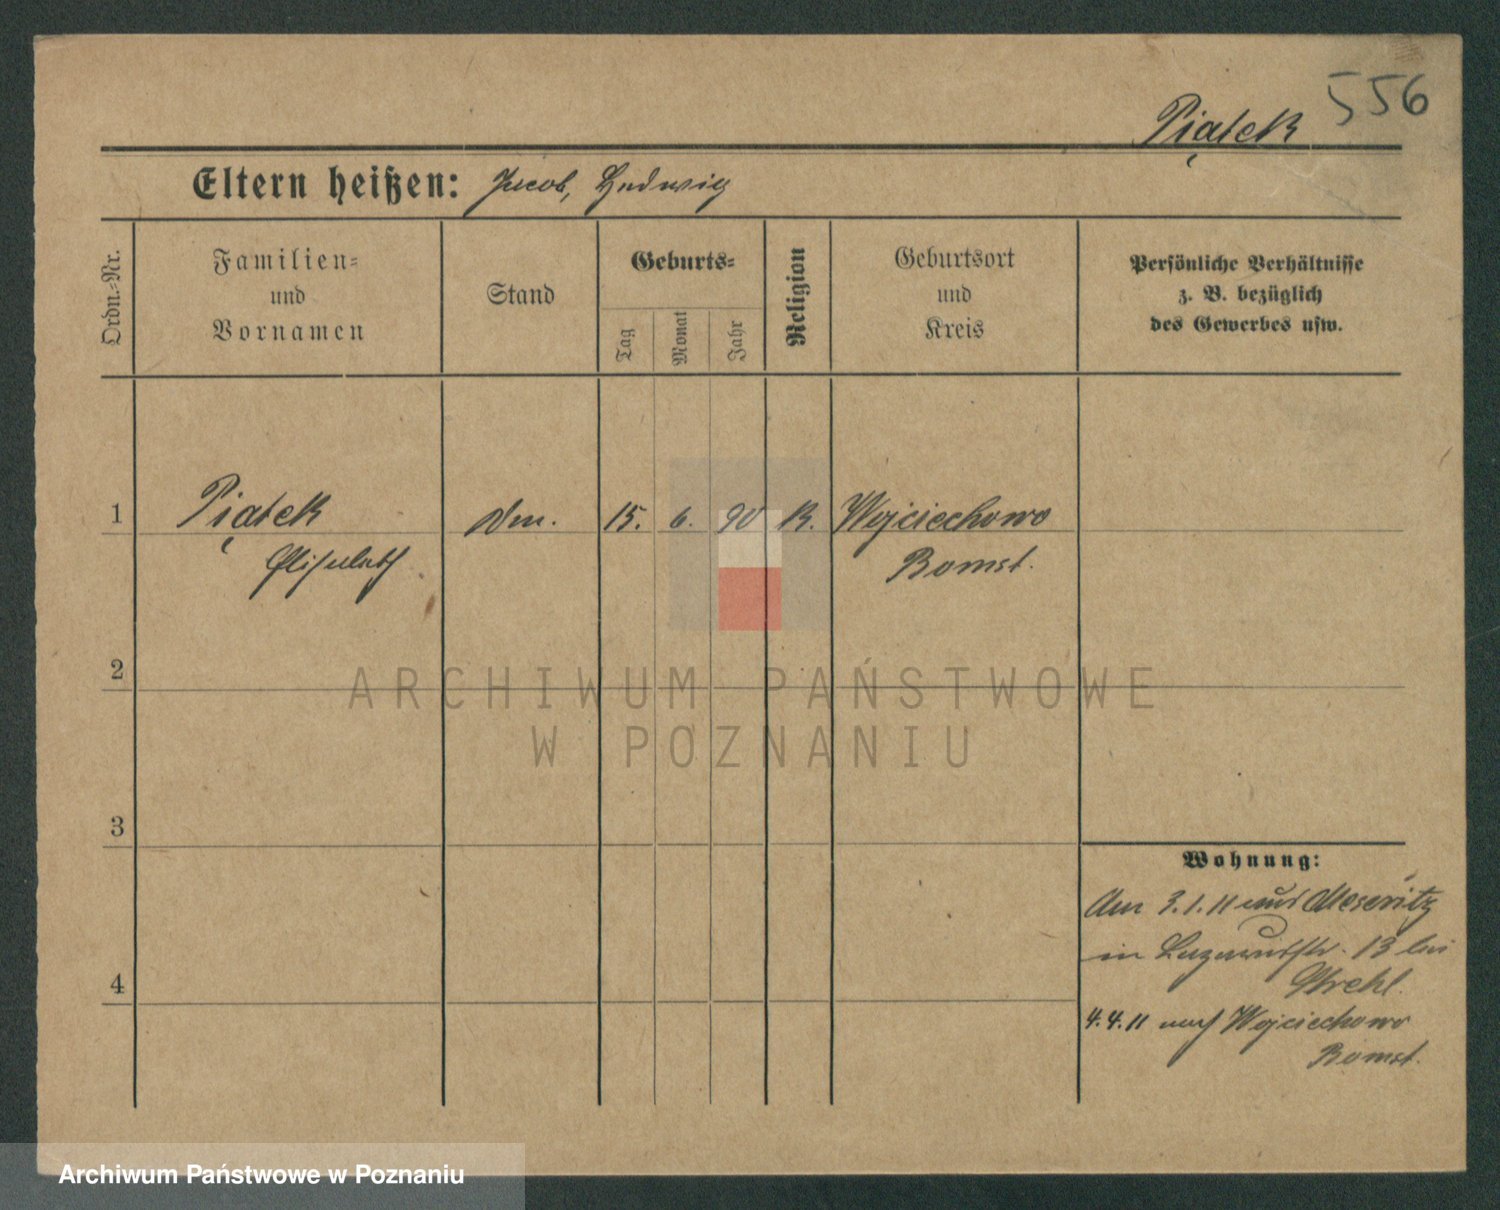 556
Piątek
Eltern heißen: Jacob, Hedwig
Ordn.-Nr.
Familien-
und
Vornamen
Stand
Geburts-
Tag
Monat
Jahr
Religion
Geburtsort
und
Kreis
Persönliche Verhältnisse
z. B. bezüglich
des Gewerbes usw.
1 Piątek 15. 6. 90 K. Wojciechowo
Elisabeth Bomst.
2
3
4
Wohnung:
Am 3.1.11 aus Meseritz
in Lazarusstr. 13 bei
4.4.11 nach Wojciechowo
Bomst.
ARCHIWUM PAŃSTWOWE
W POZNANIU
Archiwum Państwowe w Poznaniu